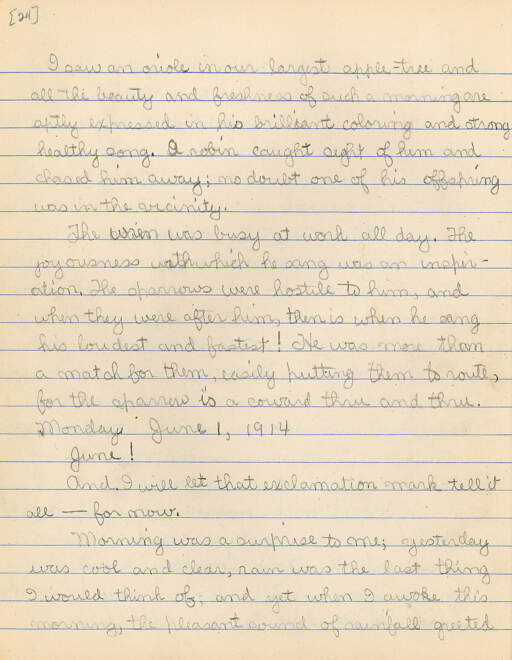 [24]
I saw an oriole in our largest apple-tree and
all the beauty and freshness of such a morning are
aptly expressed in his brilliant coloring and strong
healthy song. A robin caught sight of him and
chased him away; no doubt one of his offspring
was in the vicinity.
The wren was busy at work all day. The
joyousness with which he sang was an inspir-
ation. The sparrows were hostile to him, and
when they were after him, then is when he sang
his loudest and fastest! He was more than
a match for them, easily putting them to route,
for the sparrow is a coward thru and thru.
Monday June 1, 1914
June!
And I will let that exclamation mark tell it
all — for now.
Morning was a surprise to me; yesterday
was cool and clear, rain was the last thing
I would think of; and yet when I awoke this
morning, the pleasant sound of rainfall greeted